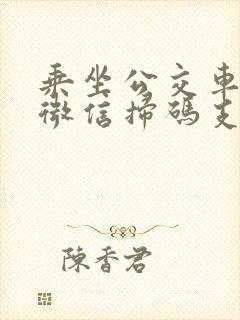 乘坐公交車
微信掃碼支
陳香君